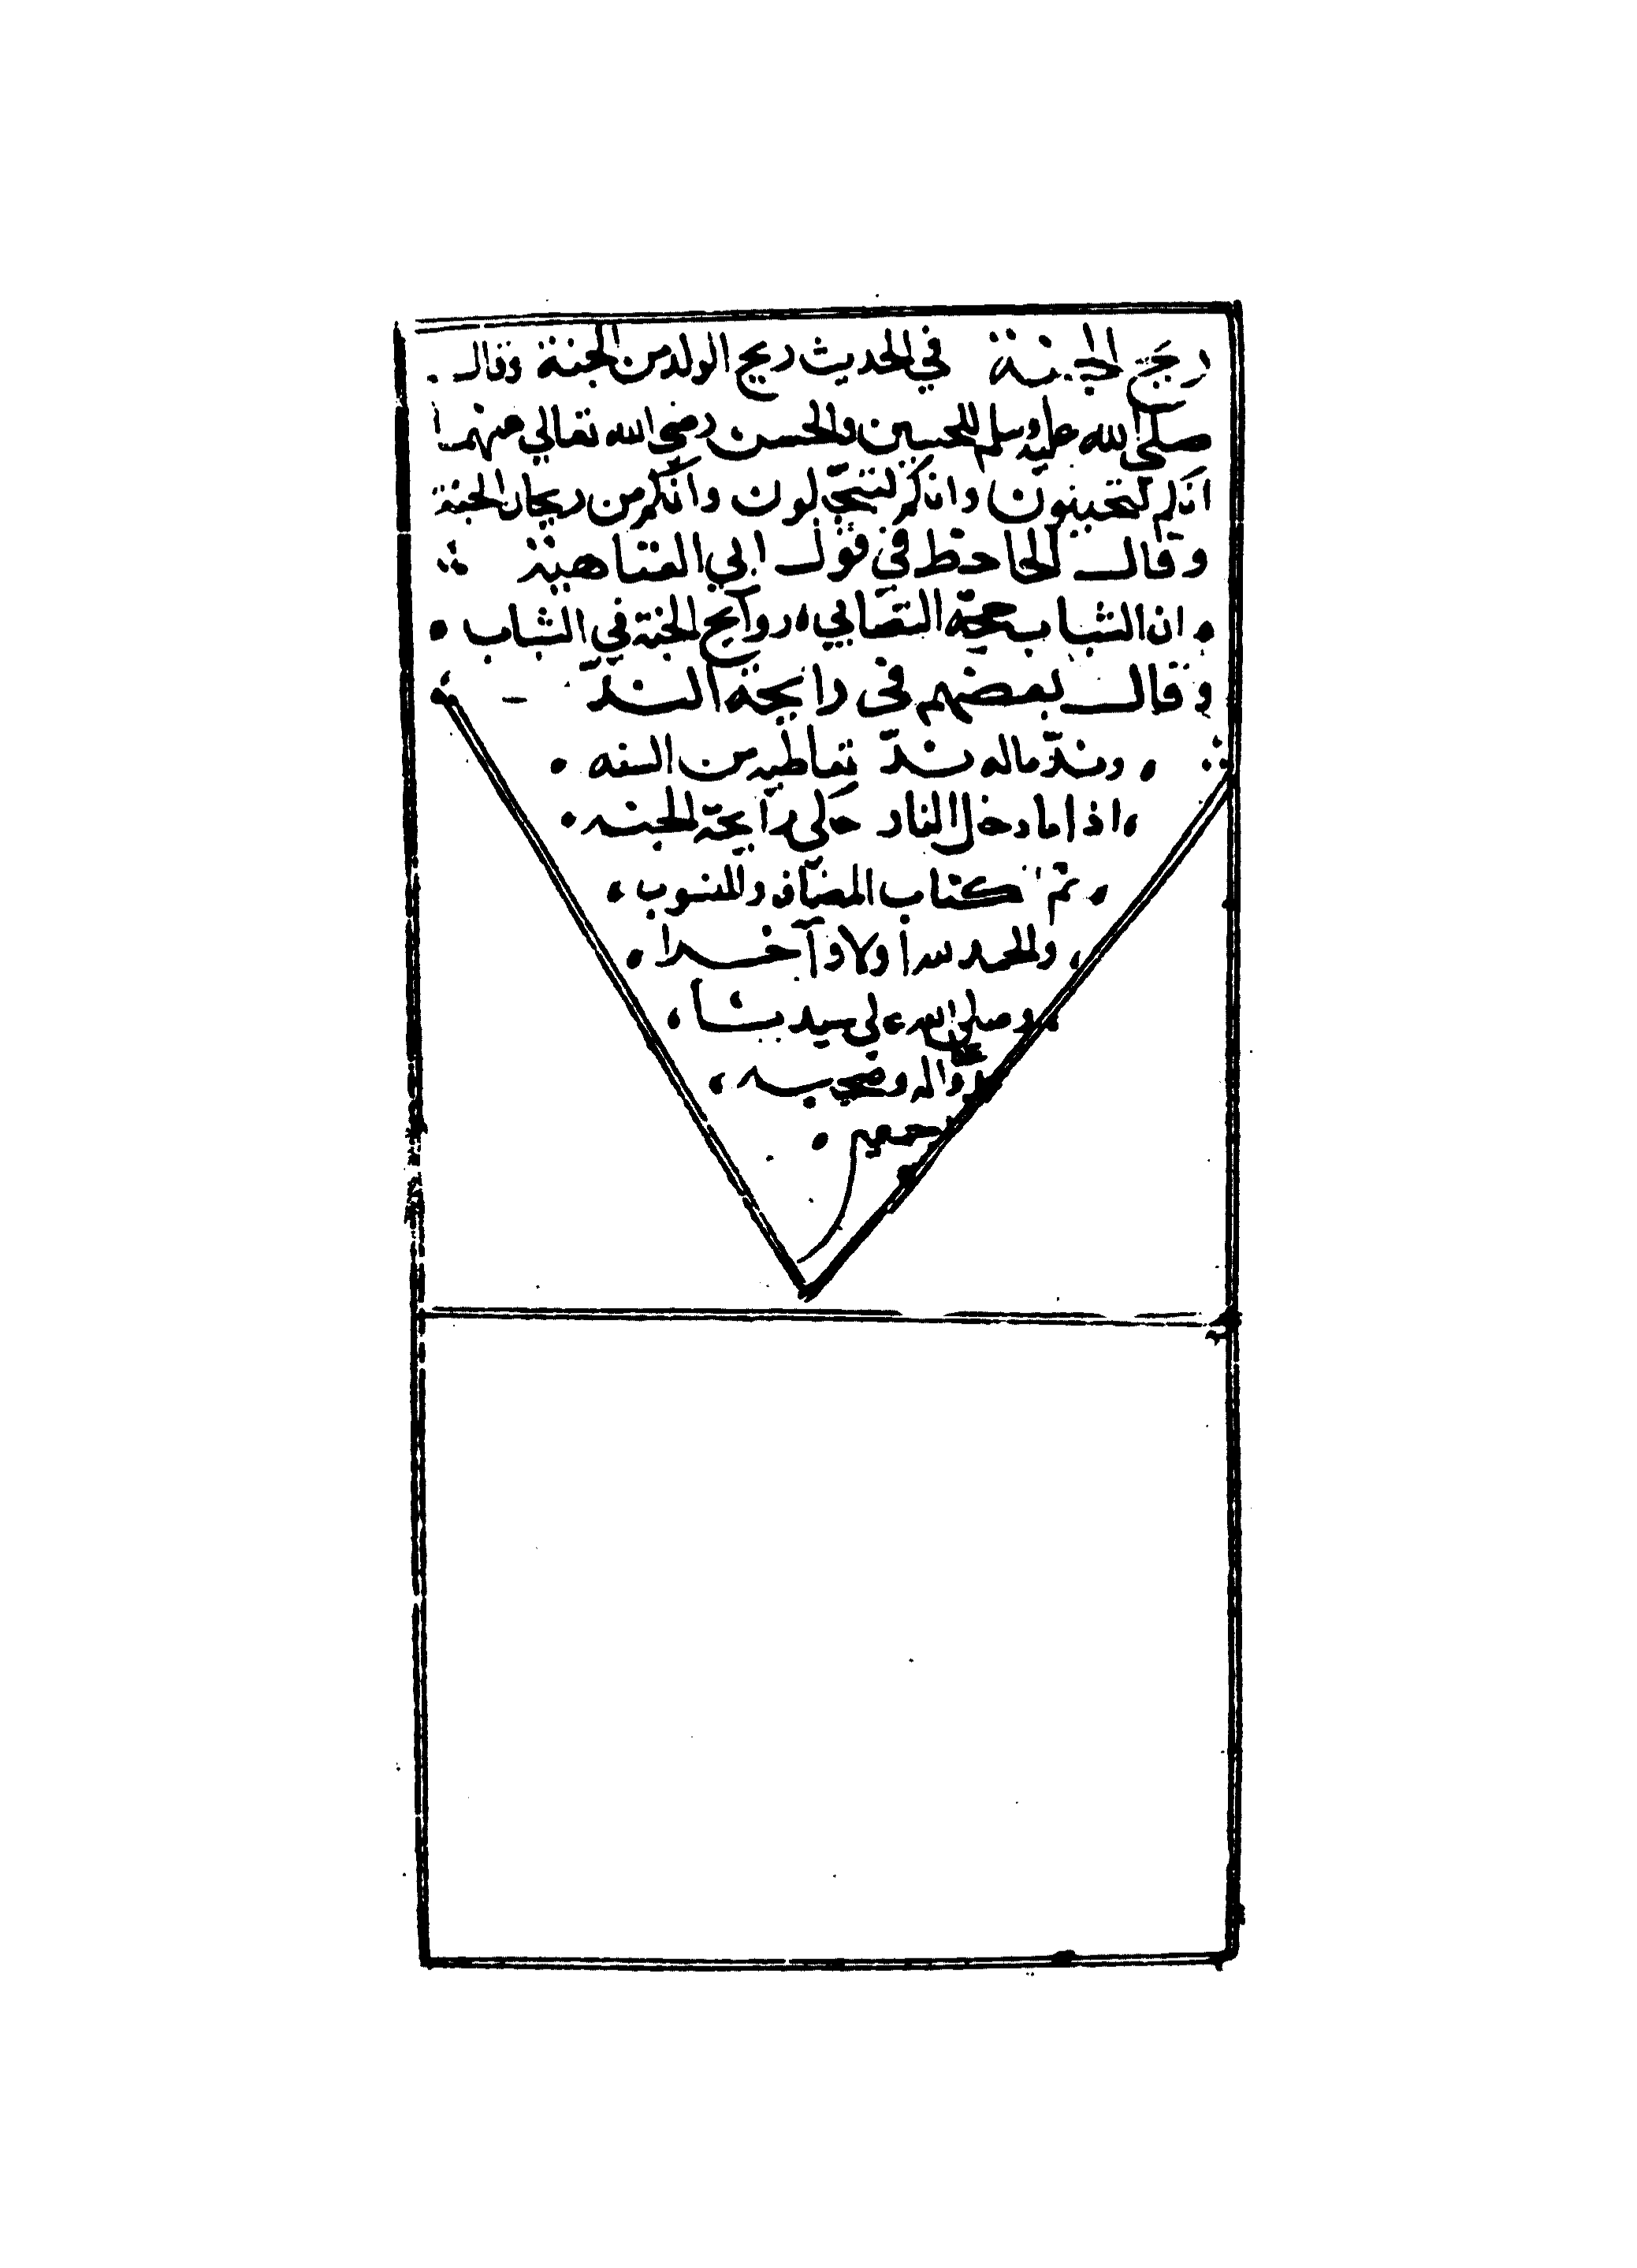 ريح الجنة في الحديث ريح الولد من الجنة وقال
صلى الله عليه وسلم للحسين والحسن رضي الله تعالى عنهما
انكم لتجبنون وانكم لتبخلون وانكم من ريحان الجنة
وقال الجاحظ في قول ابي العتاهية
ان الشباب حجة التصابي روآيح الجنة في الشباب
وقال بعضهم في رايحة الندّ
وندّ ماله ندّ تعاطيه من السنه
اذا ما دخل النار حكى رآيحة الجنه
تم كتاب المضاف والمنسوب
والحمد لله أولا وآخرا
وصلى الله على سيدنا
محمد وآله وصحبه
اجمعين